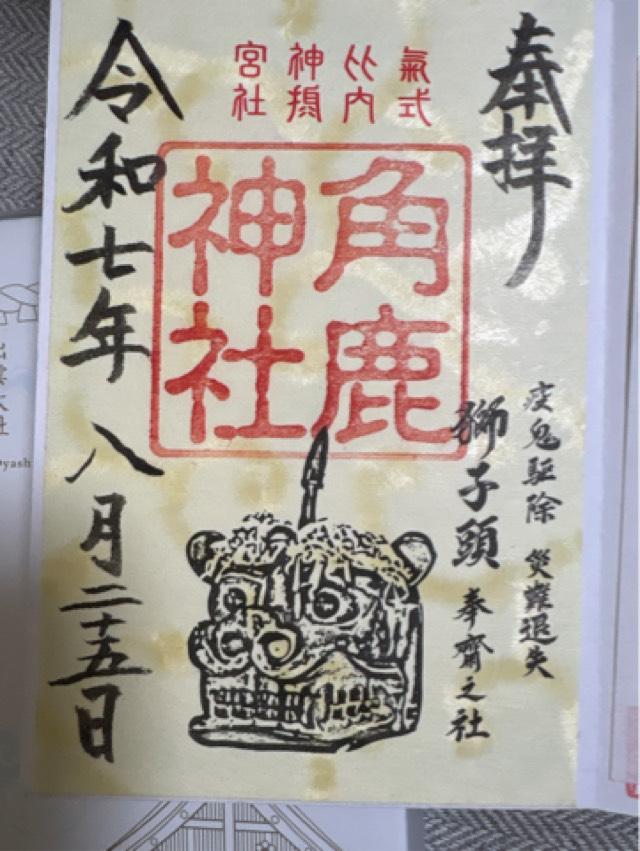 奉拝
氣比神宮
式内攝社
角鹿
神社
疫鬼駈除 災難退失
獅子頭 奉齋之社
令和七年 八月二十五日
出雲大社